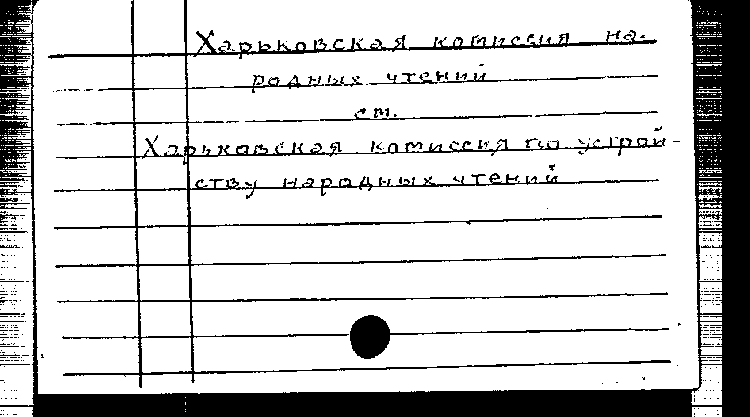 Харьковская комиссия на-
родных чтений
см.
Харьковская комиссия по устрой-
ству народных чтений